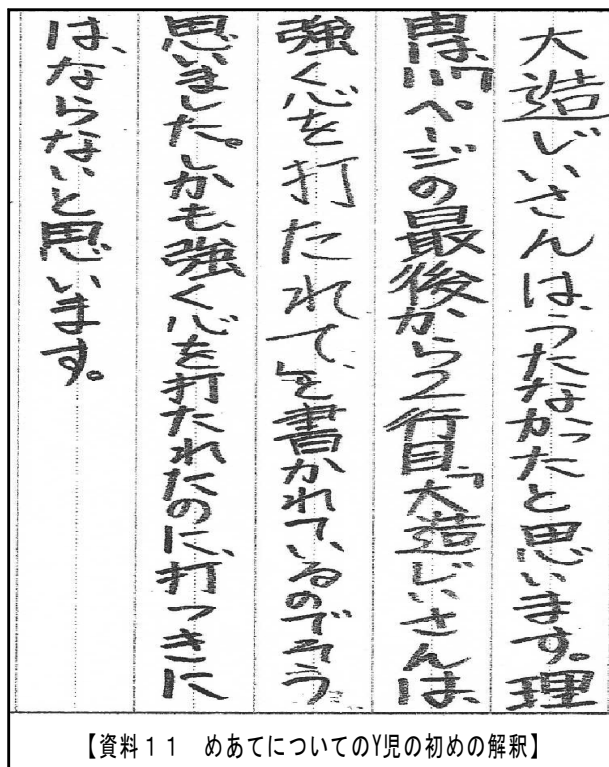 大造じいさんは、うたなかったと思います。理
由は、117ページの最後から2行目、「大造じいさんは、
強く心を打たれて、」と書かれているのでそう
思いました。しかも強く心を打たれたのに、打つきに
は、ならないと思います。
【資料11 めあてについてのY児の初めの解釈】